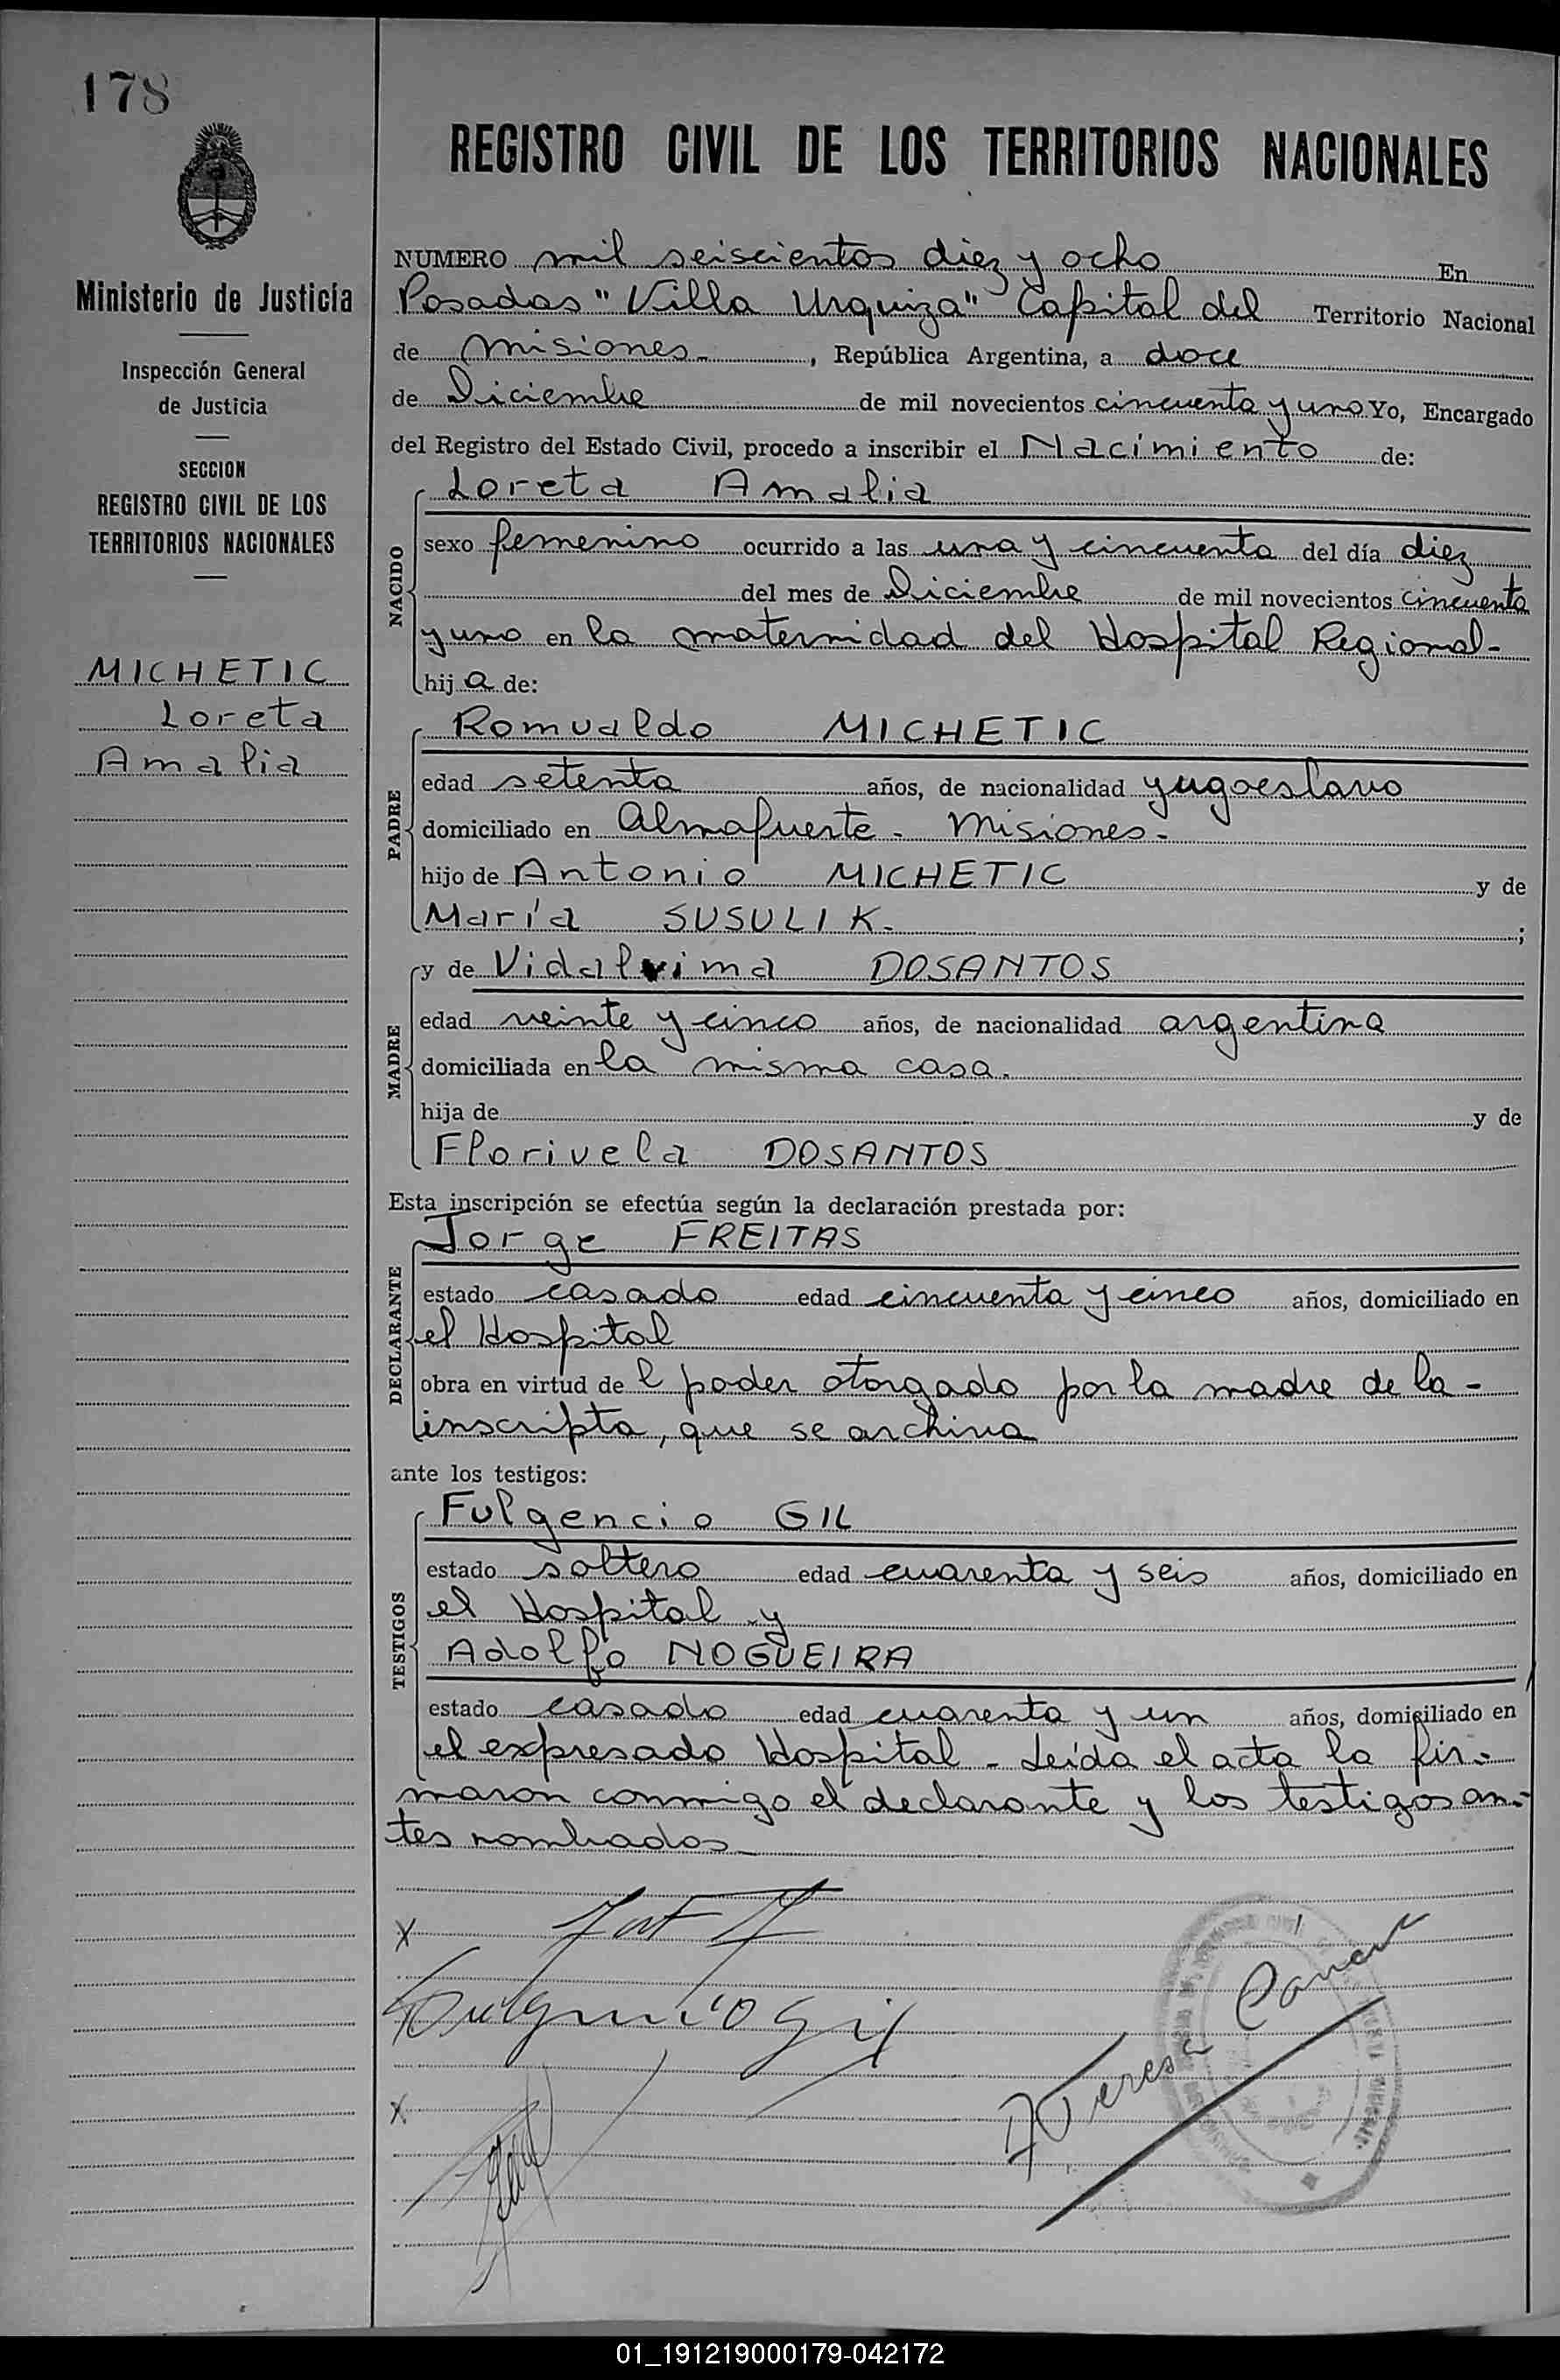 178
Ministerio de Justicia
Inspección General
de Justicia
SECCION
REGISTRO CIVIL DE LOS
TERRITORIOS NACIONALES
MICHETIC
Loreta
Amalia
REGISTRO CIVIL DE LOS TERRITORIOS NACIONALES
NUMERO mil seiscientos diez y ocho En
Posadas "Villa Urquiza" Capital del Territorio Nacional
de Misiones-, República Argentina, a doce
de Diciembre de mil novecientos cincuenta y uno Yo, Encargado
del Registro del Estado Civil, procedo a inscribir el Nacimiento de:
NACIDO
Loreta Amalia
sexo femenino ocurrido a las una y cincuenta del día diez
del mes de Diciembre de mil novecientos cincuenta
y uno en la maternidad del Hospital Regional-
hija de:
PADRE
Romualdo MICHETIC
edad setenta años, de nacionalidad yugoeslavo
domiciliado en Almafuerte - Misiones-
hijo de Antonio MICHETIC y de
María SUSULIK.;
MADRE
y de Vidalvima DOSANTOS
edad veinte y cinco años, de nacionalidad argentina
domiciliada en la misma casa.
hija de y de
Florivela DOSANTOS
Esta inscripción se efectúa según la declaración prestada por:
DECLARANTE
Jorge FREITAS
estado casado edad cincuenta y cinco años, domiciliado en
el Hospital
obra en virtud del poder otorgado por la madre de la-
inscripta, que se archiva
ante los testigos:
TESTIGOS
Fulgencio GIL
estado soltero edad cuarenta y seis años, domiciliado en
el Hospital y
Adolfo NOGUEIRA
estado casado edad cuarenta y un años, domiciliado en
el expresado Hospital - Leída el acta la fir-
maron conmigo el declarante y los testigos an-
tes nombrados-
x
Fulgencio Gil
x
Teresa
01_191219000179-042172